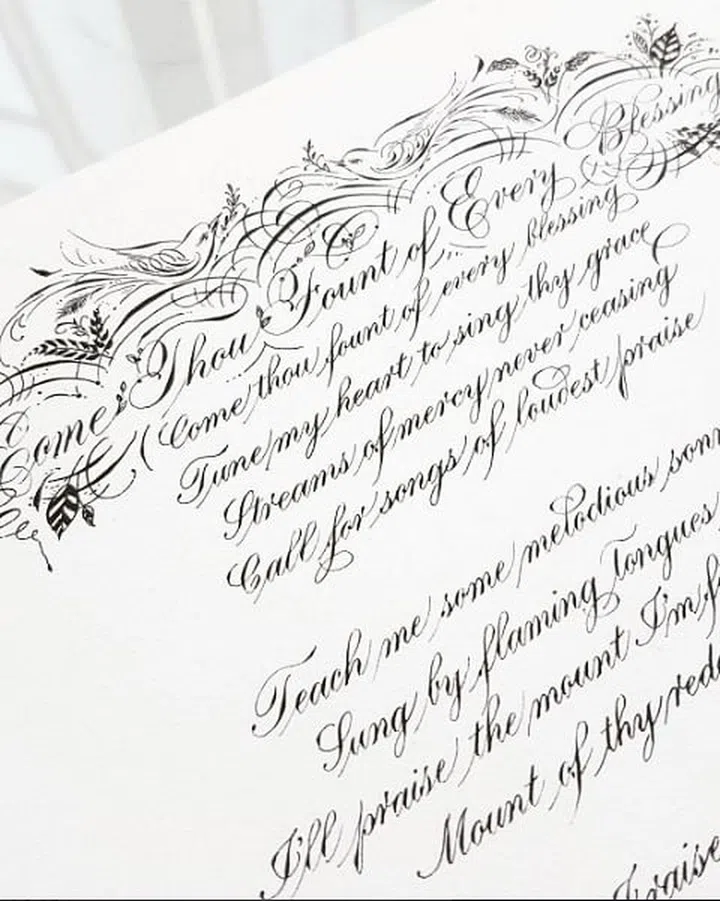 Come Thou Fount of Every Blessing
Come thou fount of every blessing
Tune my heart to sing thy grace
Streams of mercy never ceasing
Call for songs of loudest praise
Teach me some melodious sonn
Sung by flaming tongues
I'll praise the mount I'm fi
Mount of thy rede
Praise